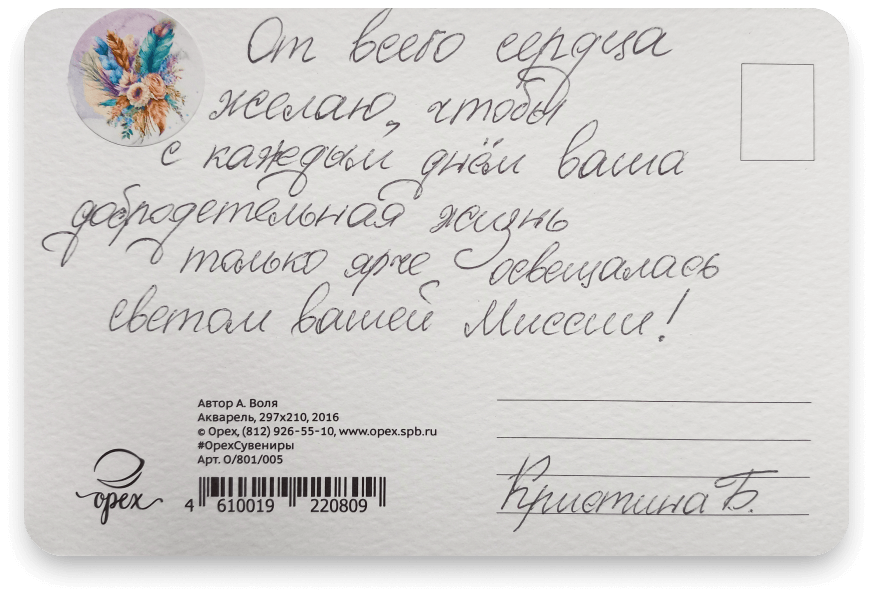 От всего сердца
желаю, чтобы
с каждым днём ваша
добродетельная жизнь
только ярче освещалась
светом вашей Миссии!
Автор А. Воля
Акварель, 297x210, 2016
© Орех, (812) 926-55-10, www.opex.spb.ru
#ОрехСувениры
Арт. О/801/005
орех
4 610019 220809
Кристина Б.